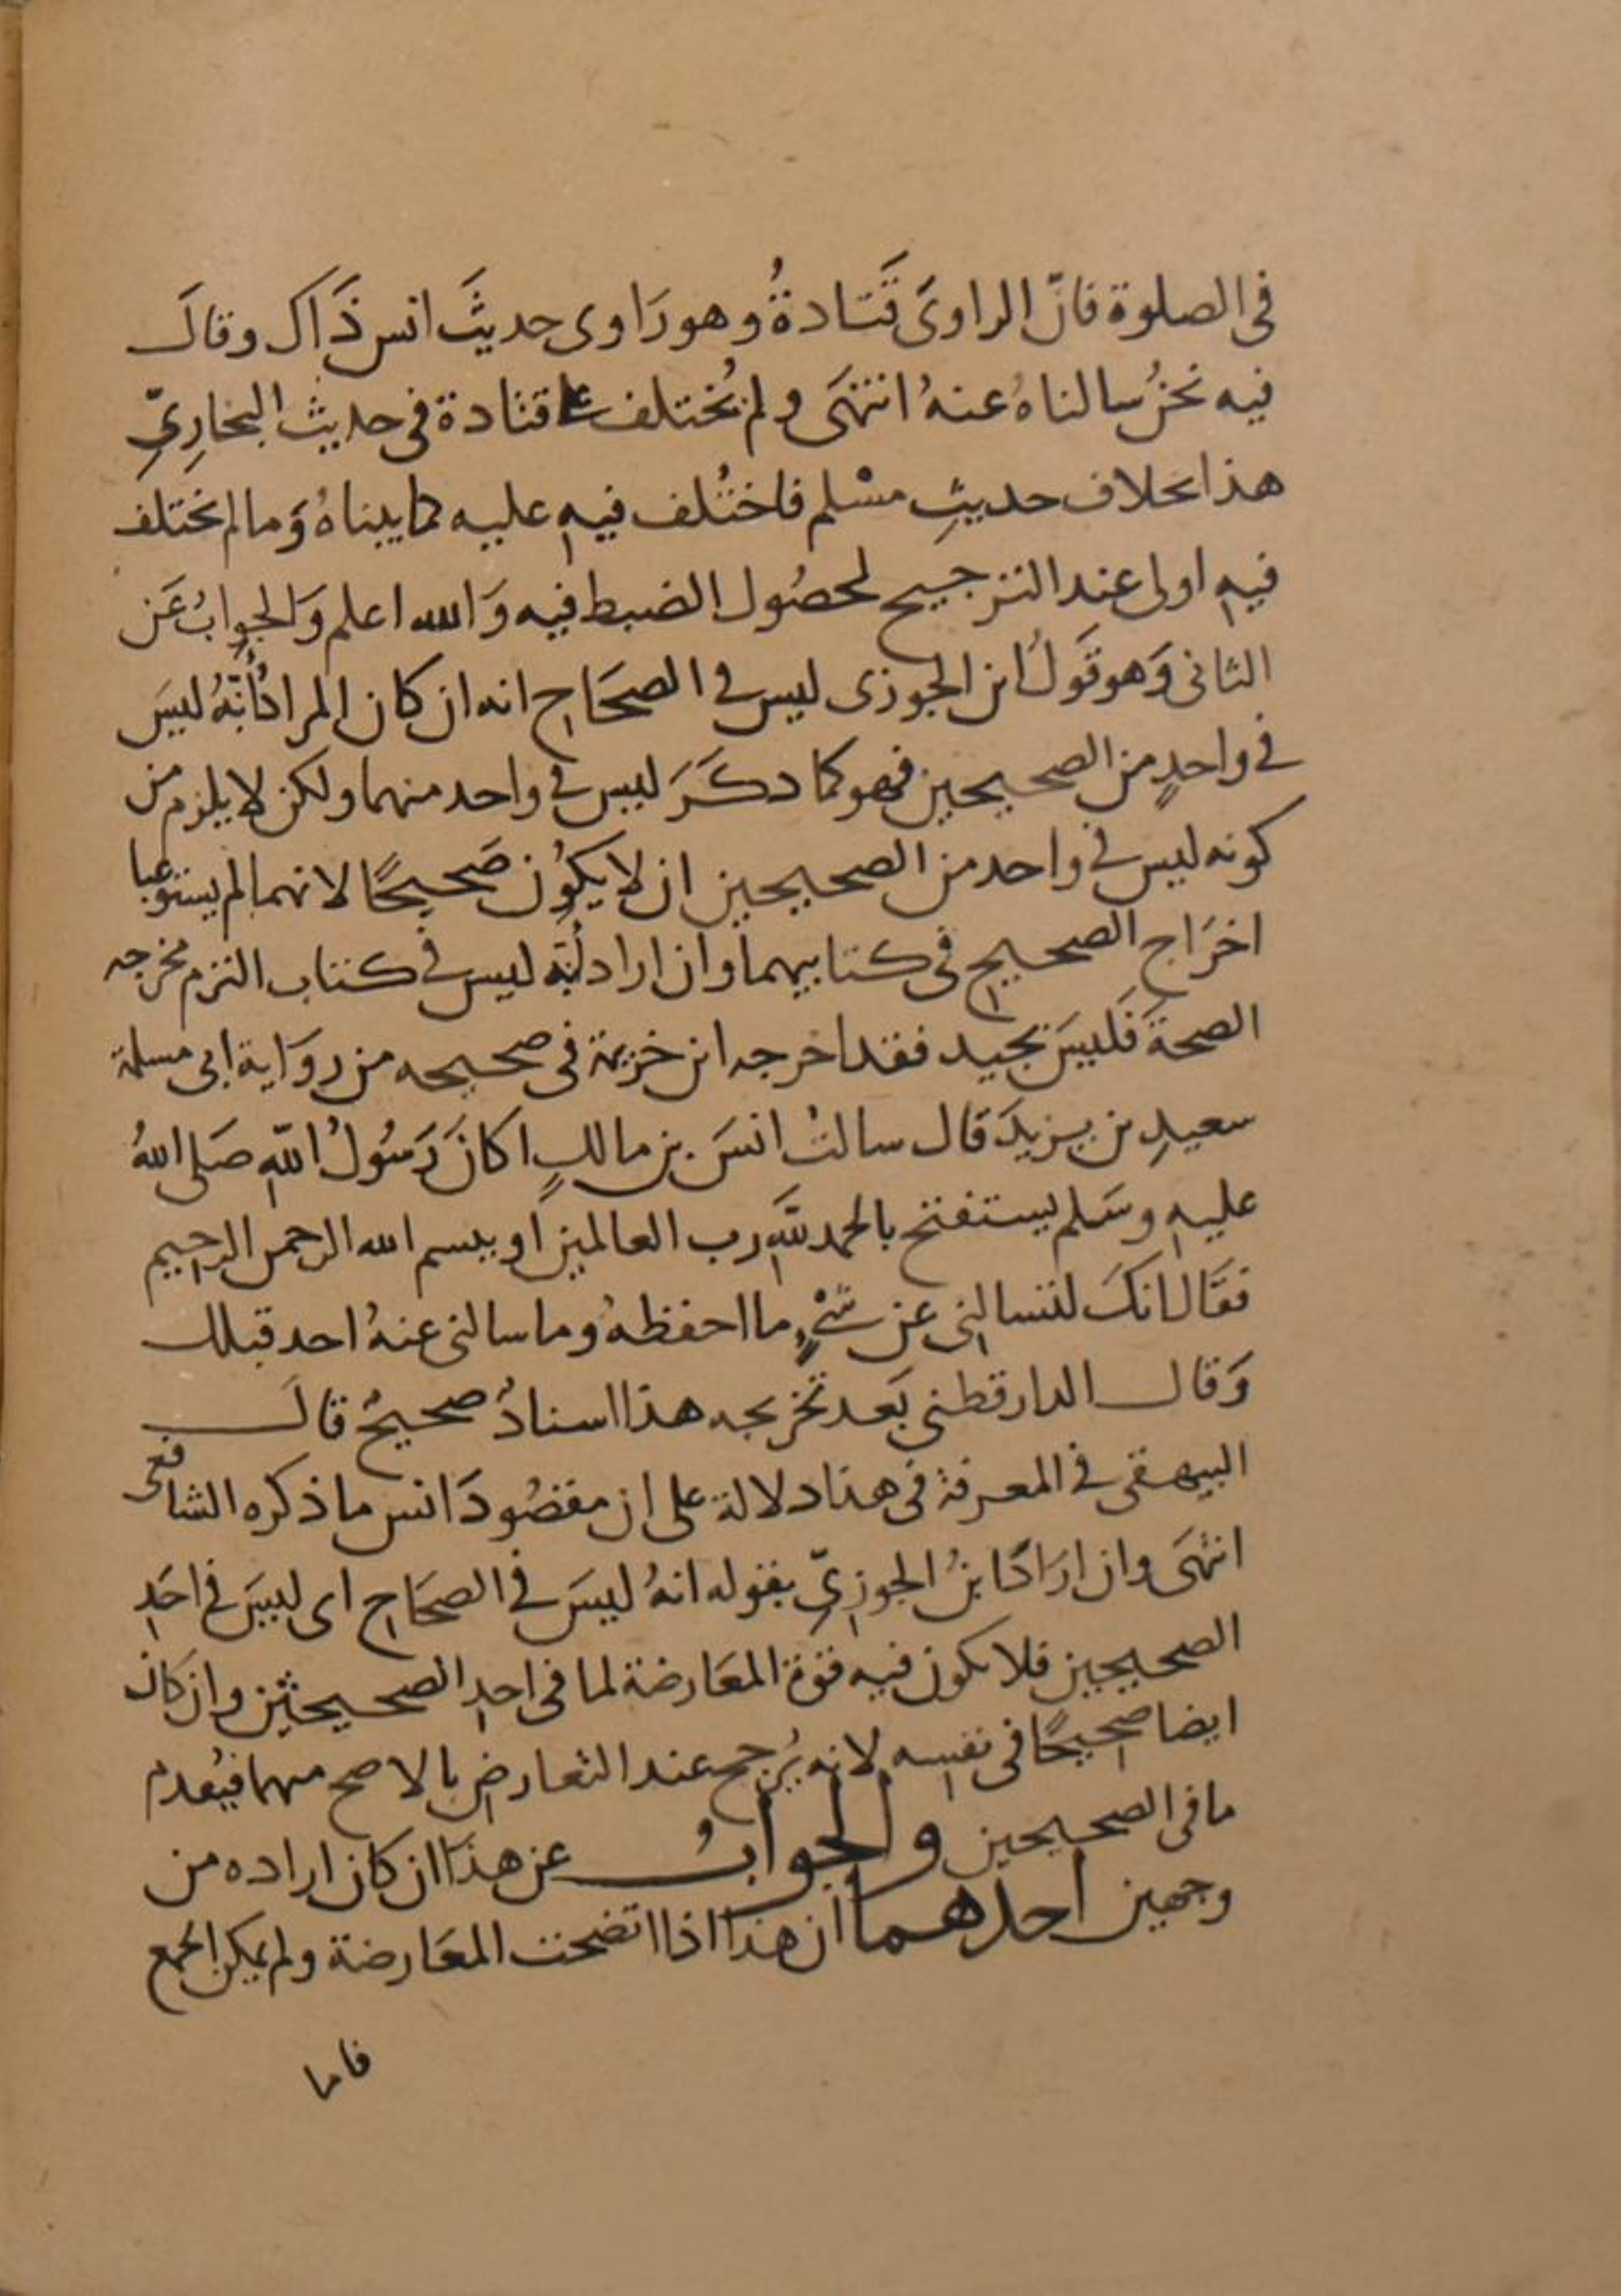 في الصلوة فانّ الراوىَ قَتَادةُ وهو رَاوى حديثَ انس ذَاك وقالَ
فيه نحنُ سالناهُ عنهُ انتهَى ولم يُختلف على قتادة في حديث البخارِيِّ
هذا بخلاف حديثِ مسْلم فاختُلف فيهِ عليه كما بيناهُ وَما لم يختلف
فيهِ اولى عند الترجيح لحصُول الضبط فيه وَالله اعلم وَالجوابُ عَن
الثانى وَهو قَولُ ابن الجوزى ليس في الصحَاح انه ان كان المرادُ أنّهُ ليسَ
في واحدٍ من الصحيحين فهو كما ذكَرَ ليس في واحد منهما ولكن لا يلزم من
كونه ليس في واحد من الصحيحين ان لا يكُون صَحيحًا لانهما لم يستوعبا
اخرَاج الصحيح في كتابيهما وان اراد أنّه ليس في كتاب التزم مخرجه
الصحةَ فَليسَ بجيد فقد اخرجه ابن خزيمة في صحيحه من روَاية ابى مسلمة
سعيدِ بن يزيدَ قال سالتُ انسَ بن مالكٍ اكانَ رَسُولُ اللهِ صَلى اللهُ
عليهِ وسَلم يستفتح بالحمد للهِ رب العالمين او ببسم الله الرحمن الرحيم
فقَال انكَ لتسالنى عن شىْءٍ ما احفظهُ وما سالنى عنهُ احد قبلك
وَقال الدارقطنى بَعد تخريجه هذا اسنادُ صحيحُ قالَ
البيهقى في المعرفة في هذا دلالة على ان مقصُودَ انس ما ذكره الشافعى
انتهَى وان ارَادَ ابنُ الجوزىِّ بقوله انهُ ليسَ في الصحَاح اى ليسَ في احَدِ
الصحيحين فلا يكون فيه قوة المعَارضة لما في احدِ الصحيحين وان كان
ايضا صحيحًا في نفسه لانه يُرجح عند التعارض بالاصح منهما فيُقدم
ما في الصحيحين والجوابُ عن هذا ان كان اراده من
وجهين احدهما ان هذا اذا اتضحت المعَارضة ولم يمكن الجمع
فاما